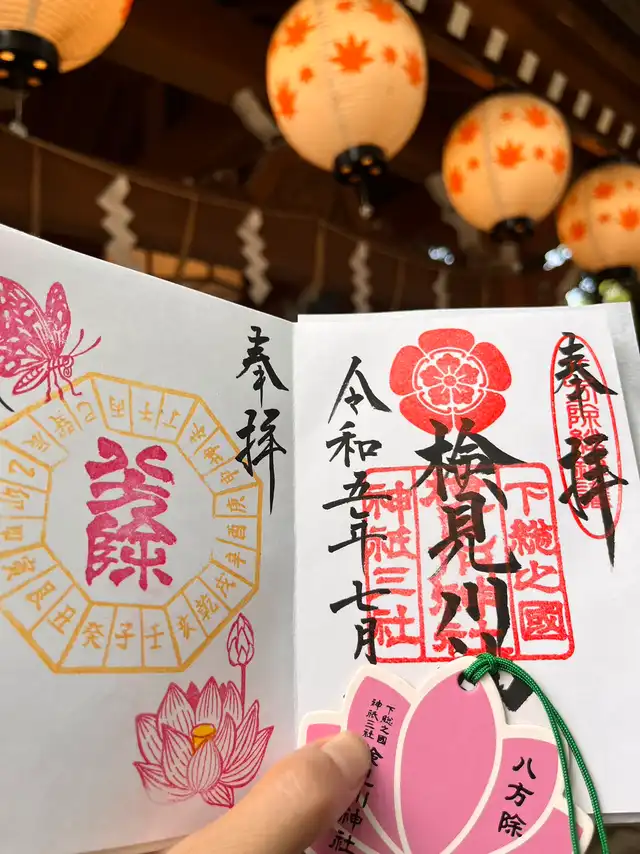 奉拝
検見川神
令和五年七月
下総之國
神祇三社
奉拝
八方除
巳
丙
午
丁
未
坤
申
庚
酉
辛
戌
乾
亥
壬
子
癸
丑
艮
寅
下総之國
神祇三社
川神社
八方除